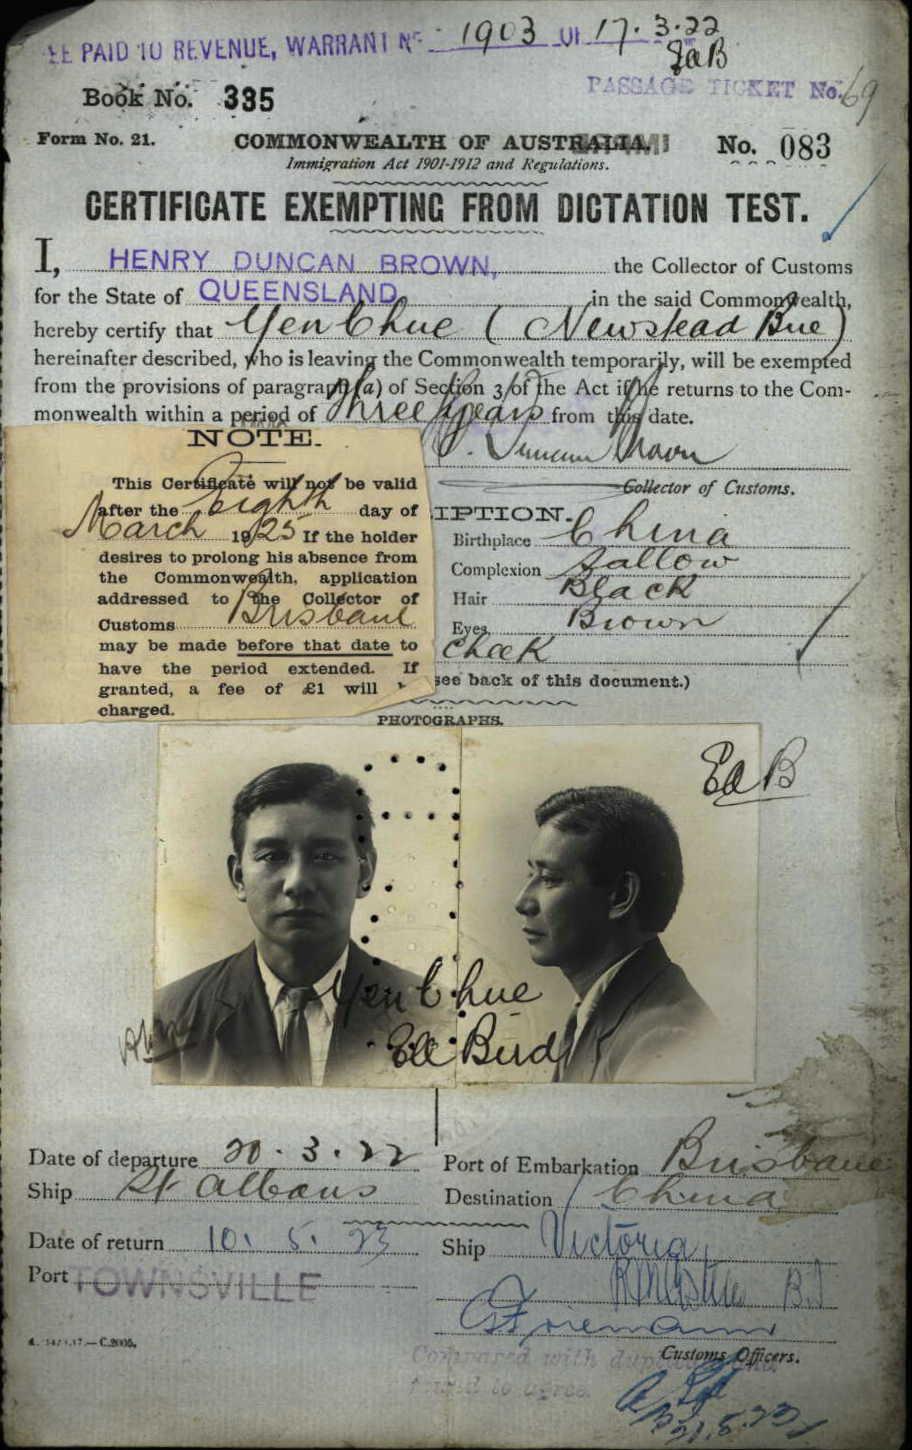 FEE PAID TO REVENUE, WARRANT No 1903 OF 17.3.22
EaB
PASSAGE TICKET No. 69
Book No. 335
Form No. 21. COMMONWEALTH OF AUSTRALIA. No. 083
Immigration Act 1901-1912 and Regulations.
CERTIFICATE EXEMPTING FROM DICTATION TEST.
I, HENRY DUNCAN BROWN, the Collector of Customs
for the State of QUEENSLAND in the said Commonwealth,
hereby certify that Yen Chue (Newstead Bue)
hereinafter described, who is leaving the Commonwealth temporarily, will be exempted
from the provisions of paragraph (a) of Section 3 of the Act if he returns to the Com-
monwealth within a period of Three Years from this date.
Duncan Brown
Collector of Customs.
NOTE.
This Certificate will not be valid
after the Eighth day of
March 1925 If the holder
desires to prolong his absence from
the Commonwealth, application
addressed to the Collector of
Customs Brisbane
may be made before that date to
have the period extended. If
granted, a fee of £1 will
charged.
IPTION.
Birthplace China
Complexion Sallow
Hair Black
Eyes Brown
Cheek
see back of this document.)
PHOTOGRAPHS.
EaB
Yen Chue
Ed Bird
Date of departure 20.3.22
Port of Embarkation Brisbane
Ship St Albans
Destination China
Date of return 10.5.23
Ship Victoria
Port TOWNSVILLE
B.I
Customs Officers.
Compared with duplicate and
found to agree.
21.5.23